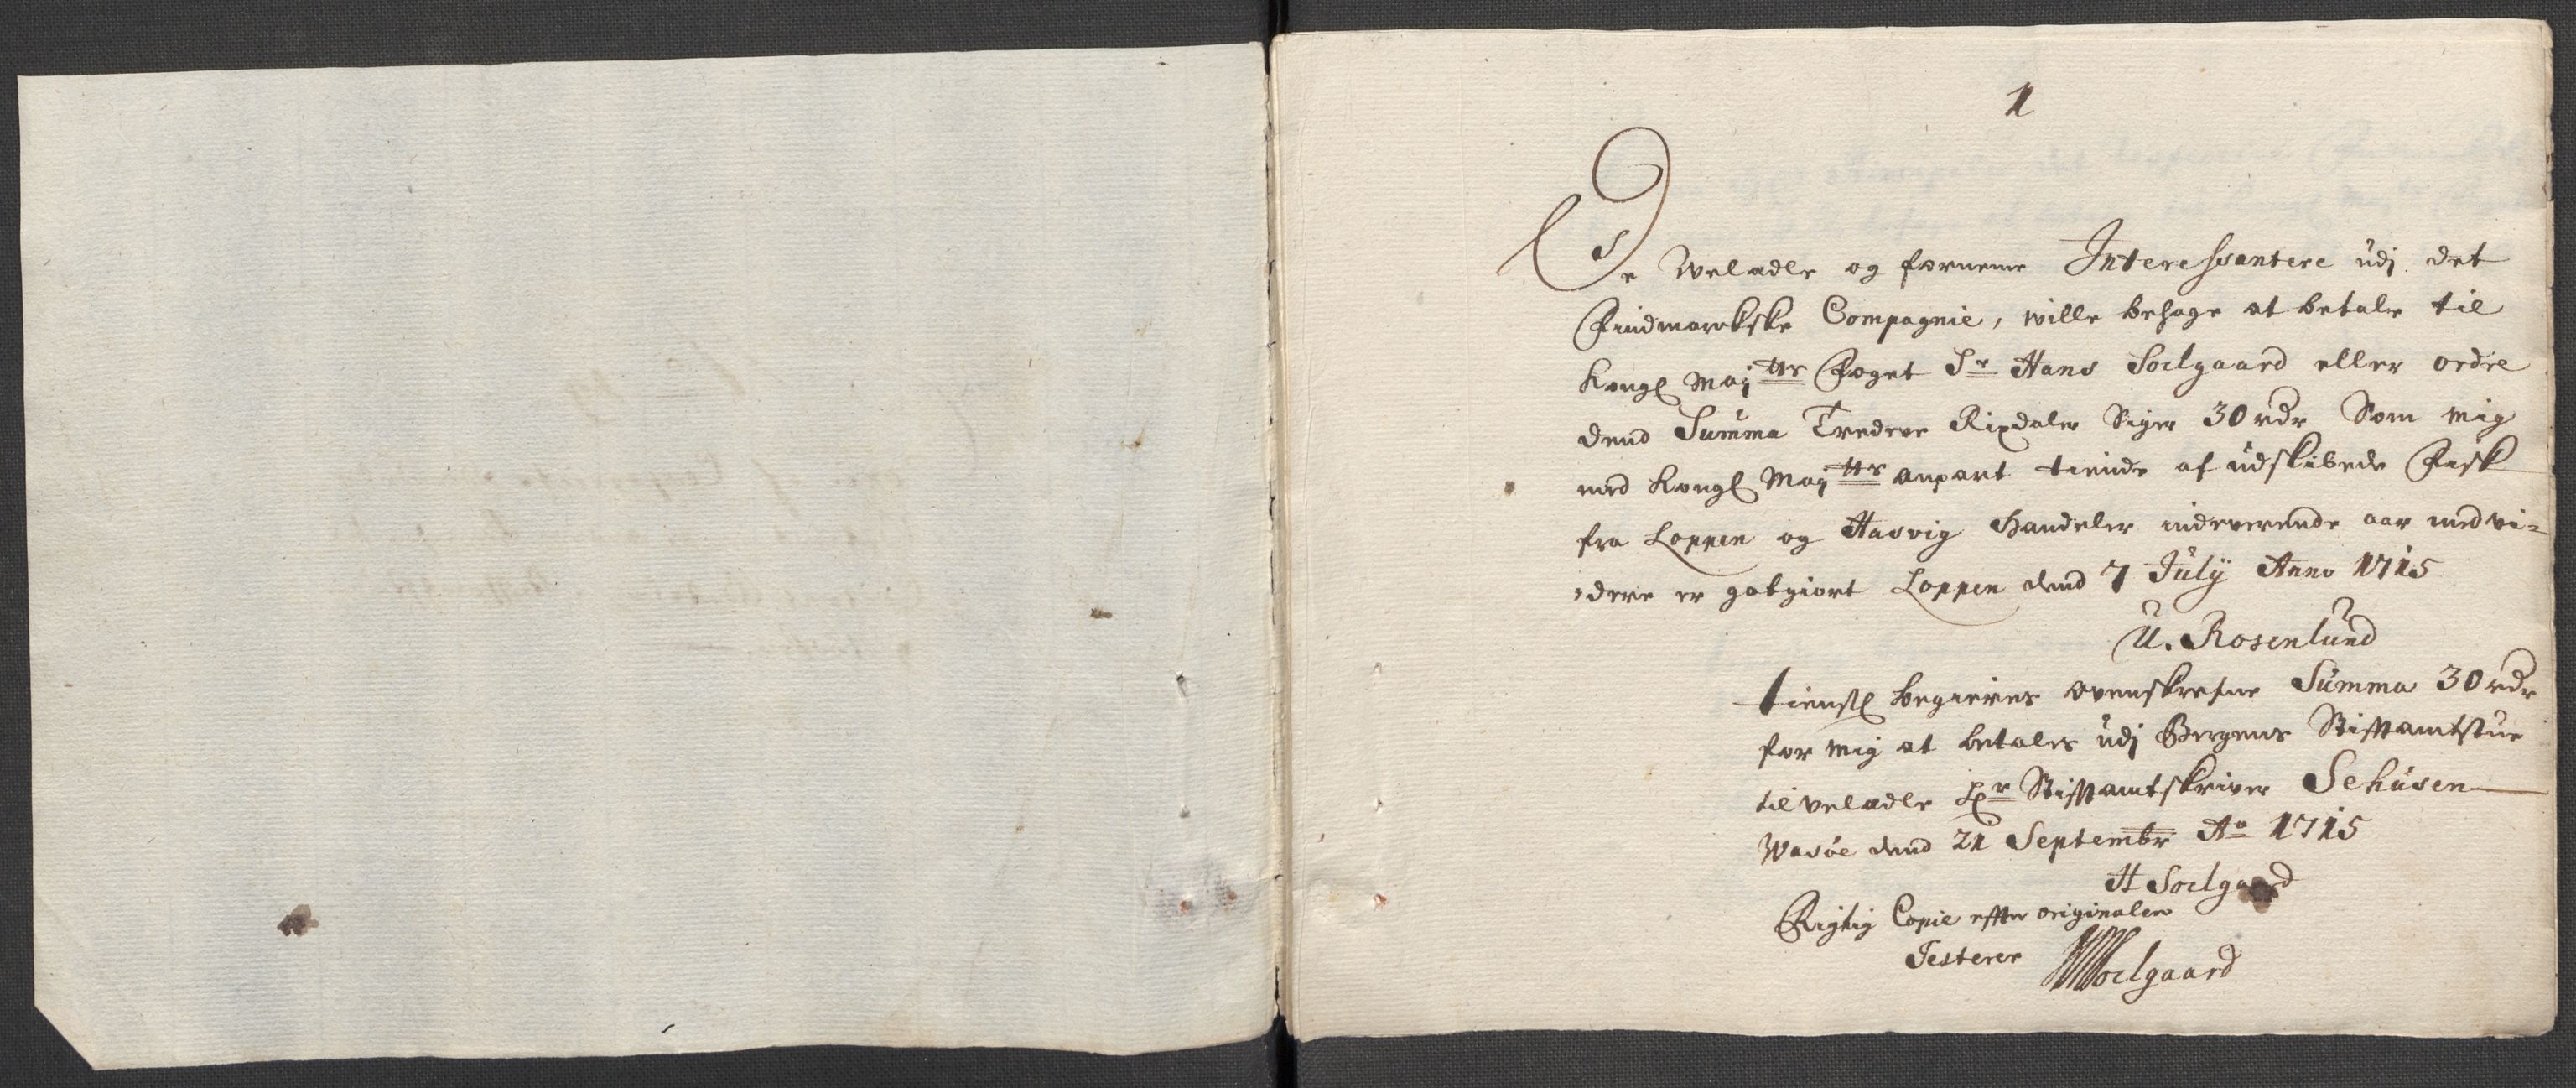 1
De Weladle og fornemme Interessentere udj det
Findmarckske Compagnie, wille behage at betale til
Kongl May:tts Foget Sr Hans Soelgaard eller ordre
dend Summa Tredeve Rixdaler Siger 30 rdr Som mig
med Kongl May:tts anpart tiende af udskibede Fisk
fra Loppen og Hasvig Handeler indeverende aar med vi-
-dere er gotgiort Loppen dend 7 July Anno 1715
U. Rosenlund
tienstl begieres ovenskrefne Summa 30 rdr
for mig at betales udj Bergens Stifftamtstue
til veladle Hr Stifftamtskriver Sehusen
Wasöe dend 21 Septembr Ao 1715
H Soelgaard
Rigtig Copie effter originalen
Testerer HSoelgaard